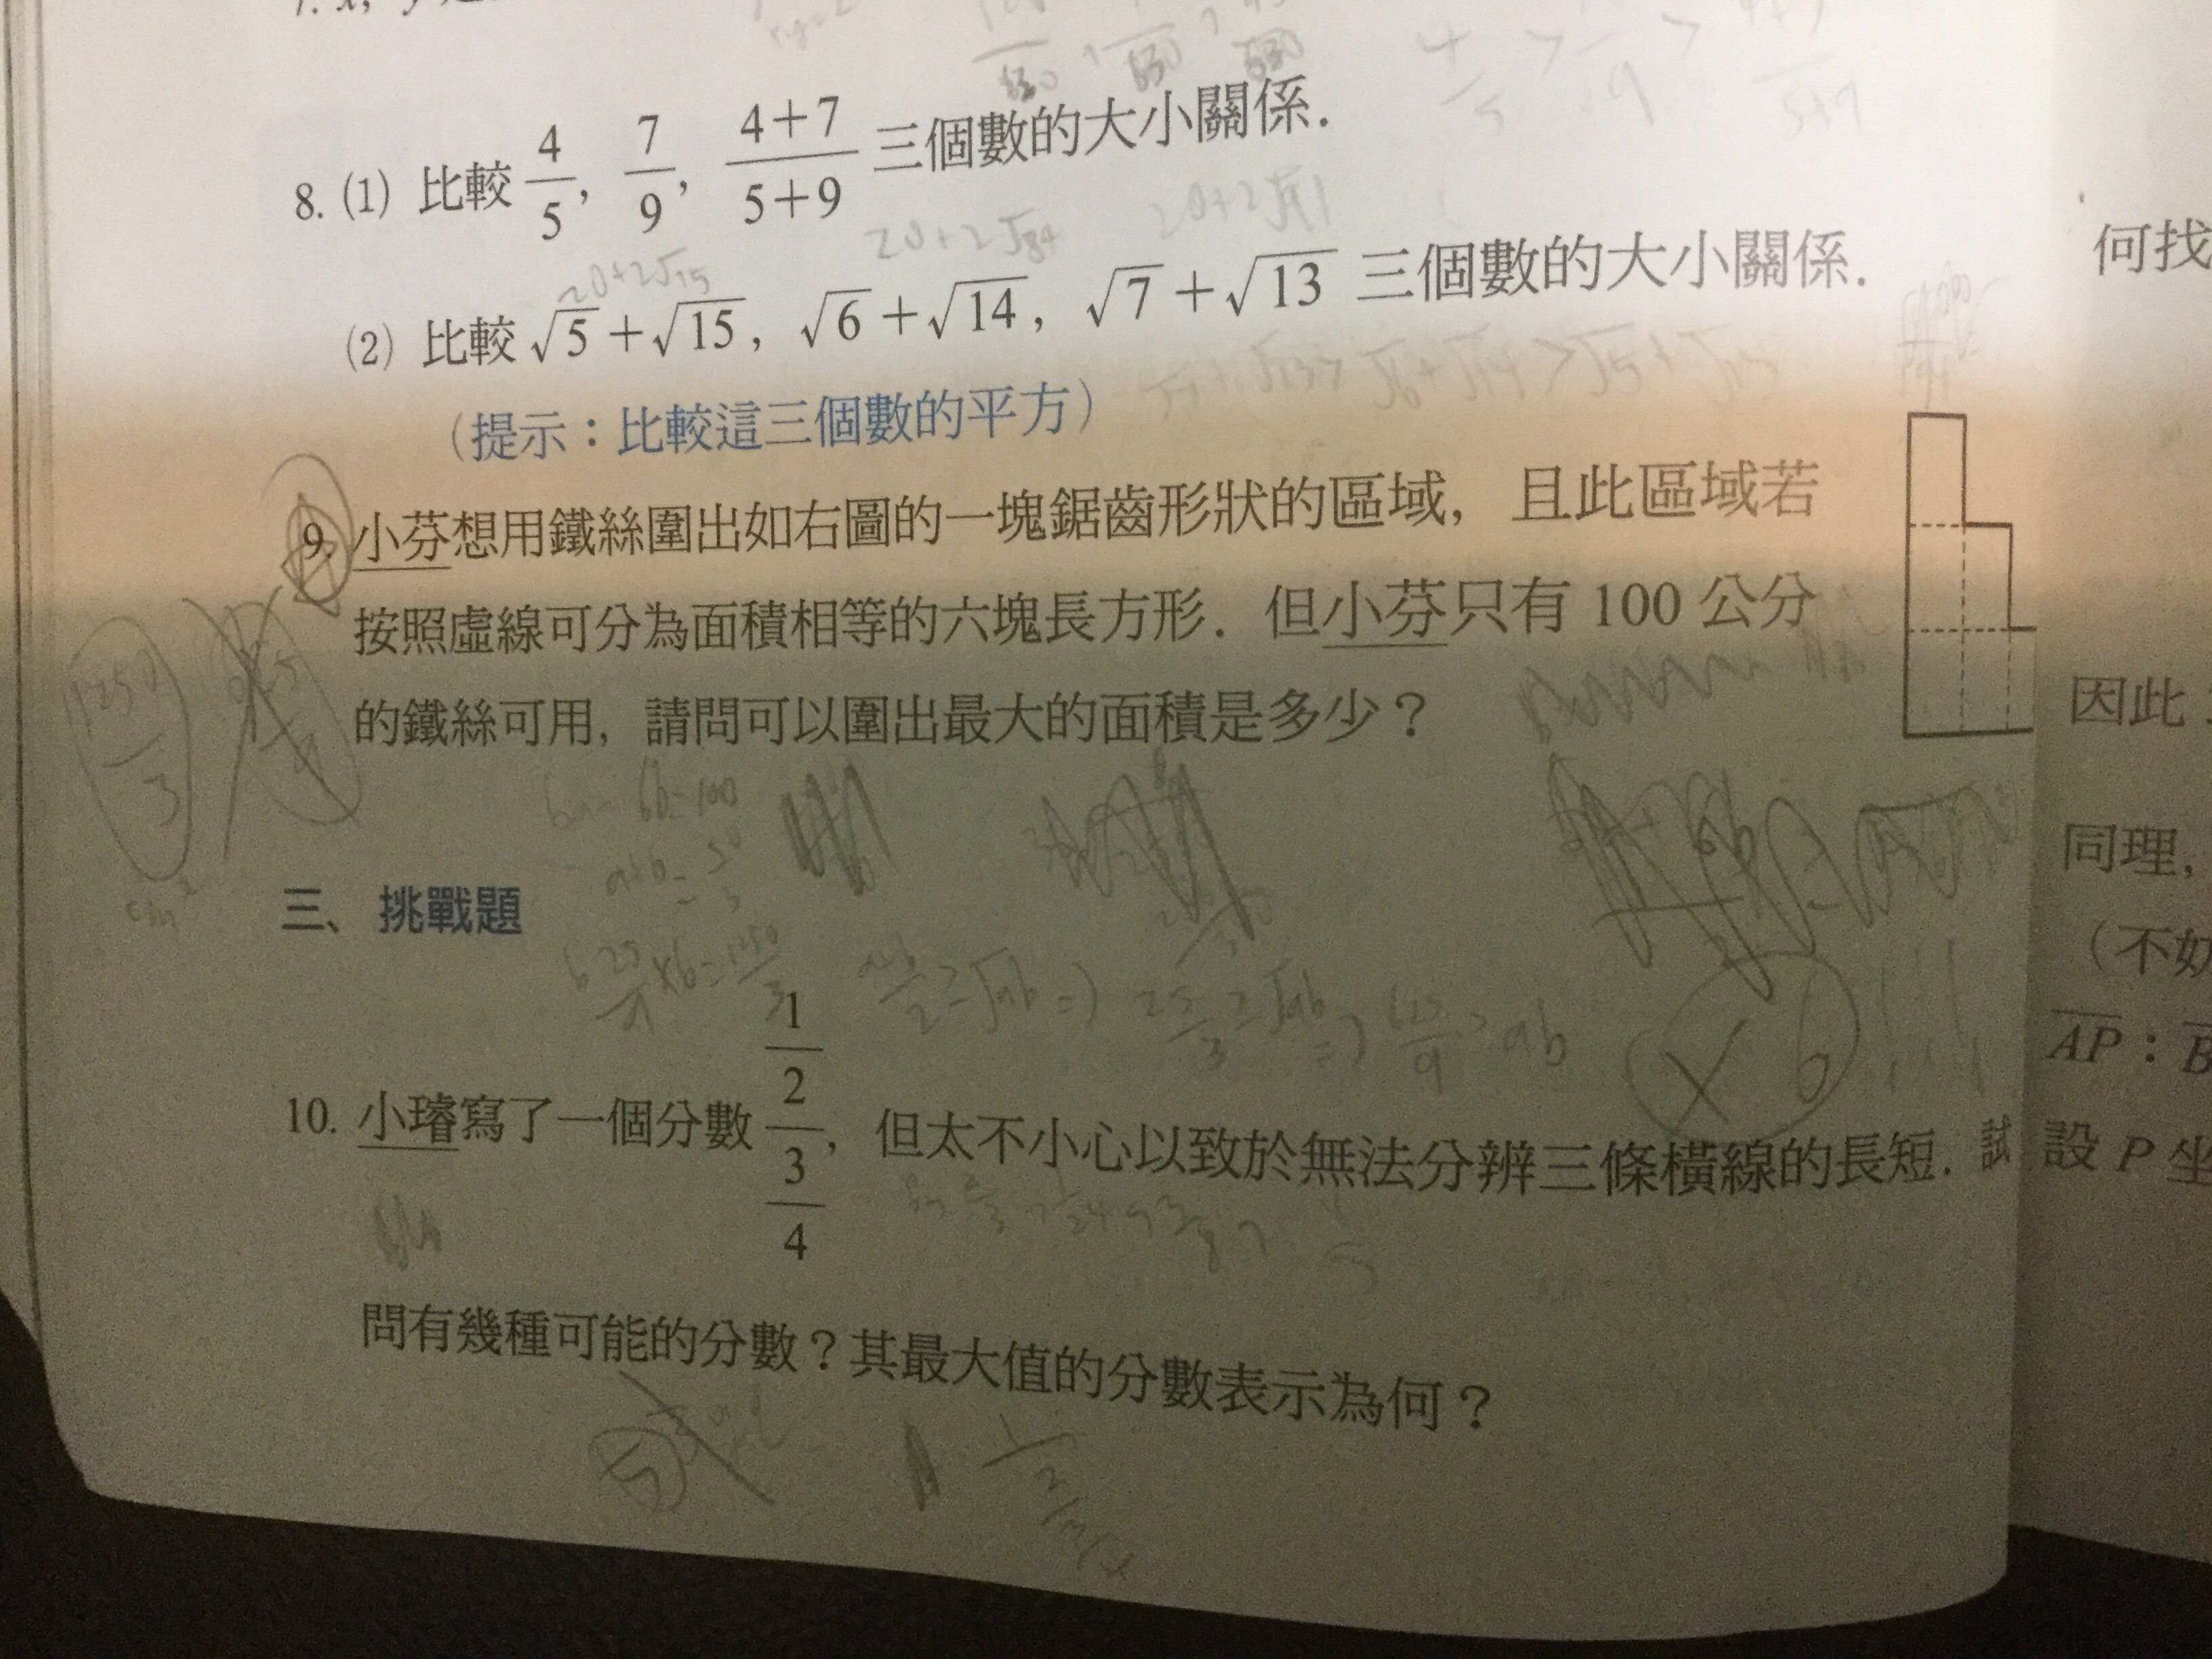 8. (1) 比較 4/5, 7/9, (4+7)/(5+9) 三個數的大小關係.
20+2√75
20+2√84
20+2√91
(2) 比較 √5+√15, √6+√14, √7+√13 三個數的大小關係.
√7+√13>√6+√14>√5+√15
(提示：比較這三個數的平方)
9. 小芬想用鐵絲圍出如右圖的一塊鋸齒形狀的區域, 且此區域若
按照虛線可分為面積相等的六塊長方形. 但小芬只有 100 公分
的鐵絲可用, 請問可以圍出最大的面積是多少？
1250/3
cm²
a+b=50/3
625/9×6=1250/3
(a+b)/2≥√ab => 25/3≥√ab => 625/9≥ab
×6
三、挑戰題
10. 小璿寫了一個分數
1
2
3
4
, 但太不小心以致於無法分辨三條橫線的長短. 試
問有幾種可能的分數？其最大值的分數表示為何？
5
何找
因此
同理,
(不妨
AP : B
設 P 坐